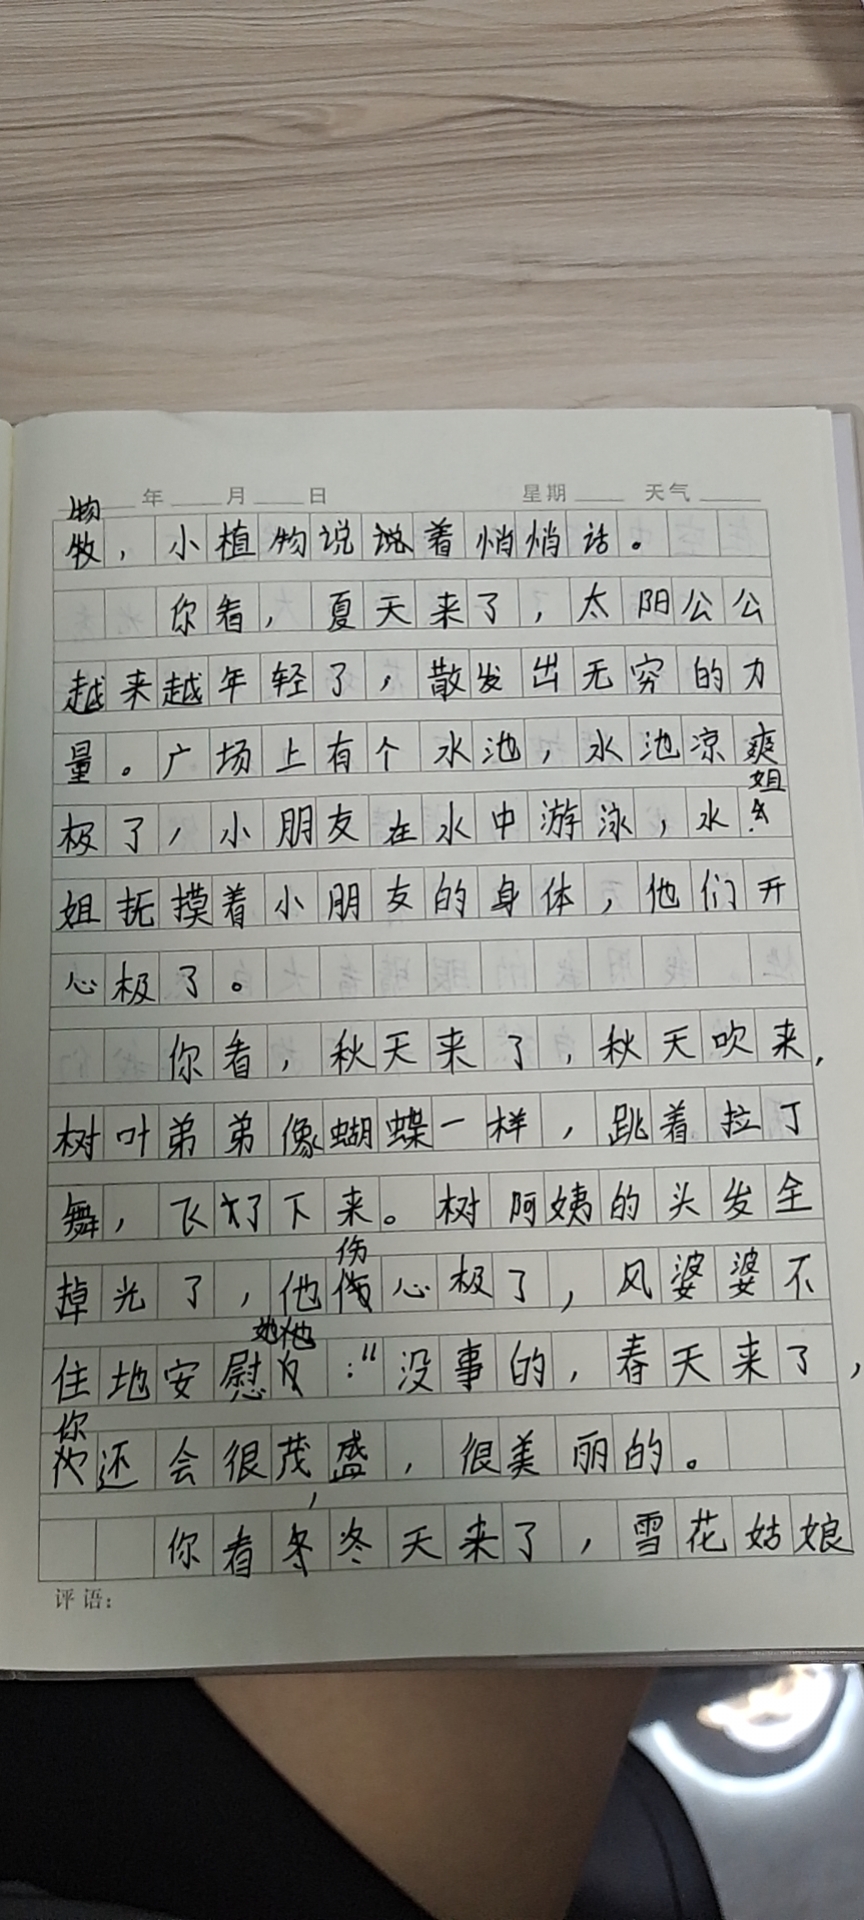 年 月 日 星期 天气
物
牧，小植物说说着悄悄话。
你看，夏天来了，太阳公公
越来越年轻了，散发出无穷的力
量。广场上有个水池，水池凉爽
姐
极了，小朋友在水中游泳，水
姐抚摸着小朋友的身体，他们开
心极了。
你看，秋天来了，秋天吹来，
树叶弟弟像蝴蝶一样，跳着拉丁
舞，飞下来。树阿姨的头发全
伤
掉光了，他心极了，风婆婆不
她他
住地安慰：“没事的，春天来了，
你
还会很茂盛，很美丽的。
你看，冬天来了，雪花姑娘
评语：